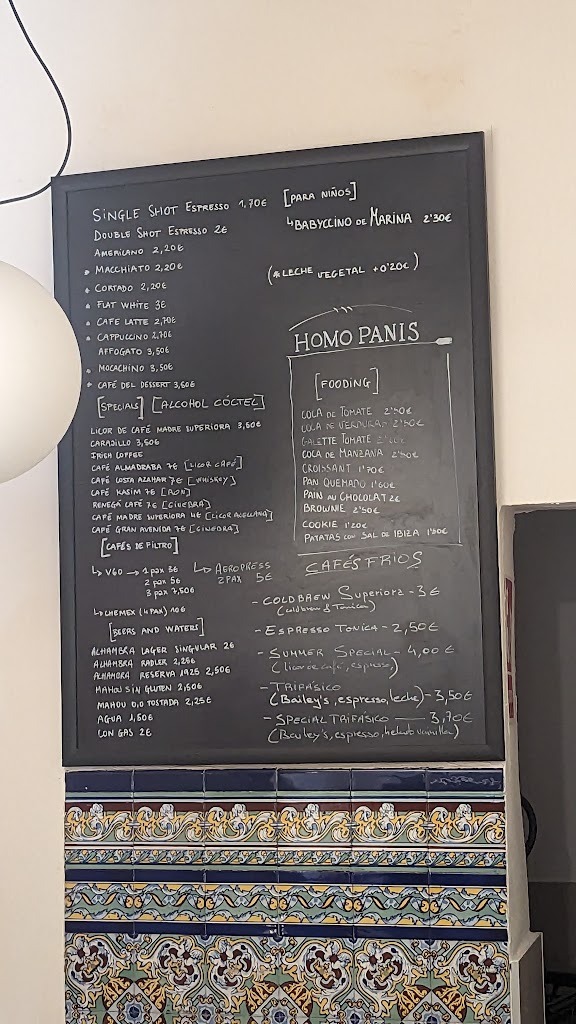 SINGLE SHOT ESPRESSO 1,70€
DOUBLE SHOT ESPRESSO 2€
AMERICANO 2,20€
* MACCHIATO 2,20€
* CORTADO 2,20€
* FLAT WHITE 3€
* CAFE LATTE 2,70€
* CAPPUCCINO 2,70€
AFFOGATO 3,50€
* MOCACHINO 3,50€
* CAFÉ DEL DESSERT 3,50€
[SPECIALS] [ALCOHOL CÓCTEL]
LICOR DE CAFÉ MADRE SUPERIORA 3,50€
CARAJILLO 3,50€
IRISH COFFEE
CAFÉ ALMADRABA 7€ [LICOR CAFÉ]
CAFÉ COSTA AZAHAR 7€ [WHISKEY]
CAFÉ KASIM 7€ [RON]
RENEGÁ CAFÉ 7€ [GINEBRA]
CAFÉ MADRE SUPERIORA 4€ [LICOR AVELLANA]
CAFÉ GRAN AVENIDA 7€ [GINEBRA]
[CAFÉS DE FILTRO]
↳ V60 → 1 pax 3€
2 pax 5€
3 pax 7,50€
↳ AEROPRESS
2 PAX 5€
↳ CHEMEX (4 PAX) 10€
[BEERS AND WATERS]
ALHAMBRA LAGER SINGULAR 2€
ALHAMBRA RADLER 2,25€
ALHAMBRA RESERVA 1925 2,50€
MAHOU SIN GLUTEN 2,50€
MAHOU 0,0 TOSTADA 2,25€
AGUA 1,50€
CON GAS 2€
[PARA NIÑOS]
↳ BABYCCINO DE MARINA 2'30€
(* LECHE VEGETAL +0'20€)
HOMO PANIS
[FOODING]
COCA DE TOMATE 2'50€
COCA DE VERDURAS 2'50€
GALETTE TOMATE
COCA DE MANZANA 2'50€
CROISSANT 1'70€
PAN QUEMADO 1'60€
PAIN AU CHOCOLAT 2€
BROWNIE 2'50€
COOKIE 1'20€
PATATAS CON SAL DE IBIZA 1'50€
CAFÉS FRIOS
- COLDBREW Superiora - 3€
(coldbrew & Tónica)
- ESPRESSO TONICA - 2,50€
- SUMMER SPECIAL - 4,00€
(licor de café, espresso)
- TRIFÁSICO
(Bailey's, espresso, leche) - 3,50€
- SPECIAL TRIFÁSICO — 3,70€
(Bailey's, espresso, helado vainilla)